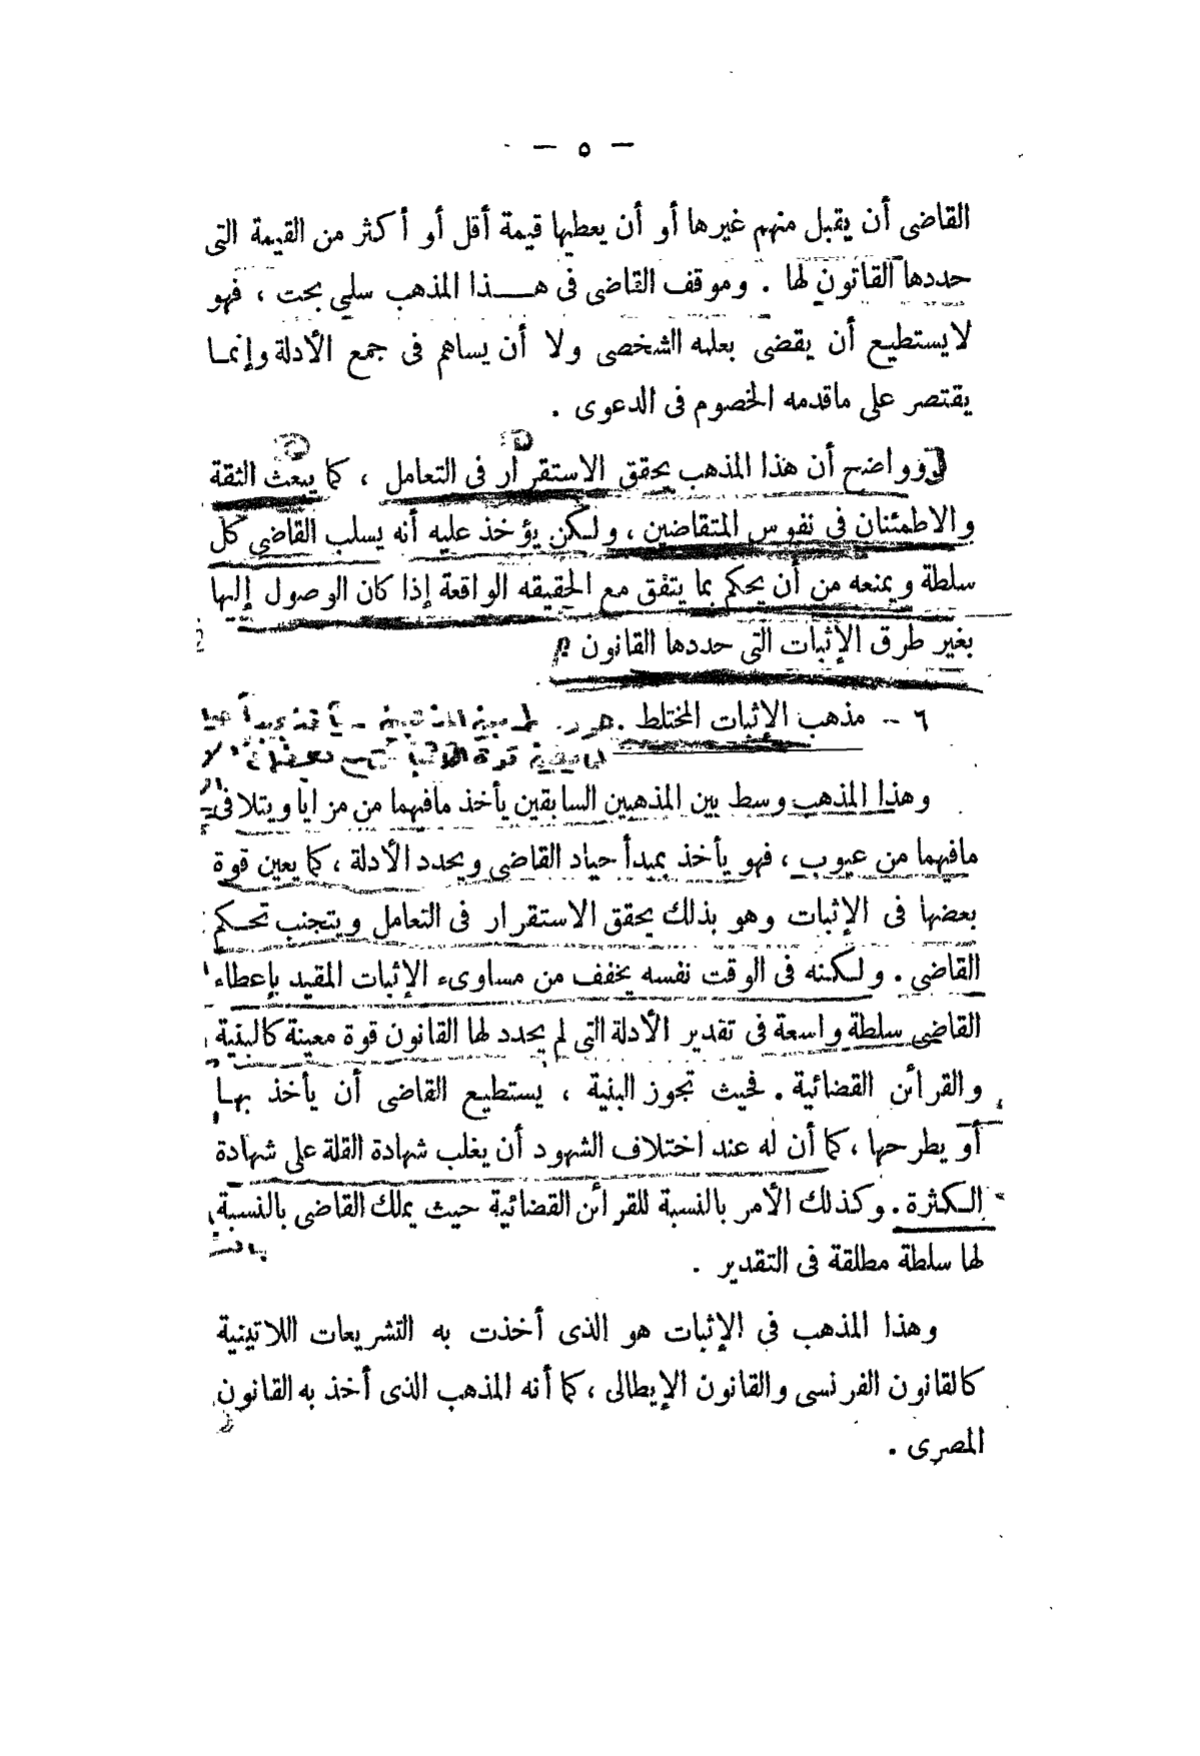 — ٥ —
القاضى أن يقبل منهم غيرها أو أن يعطيها قيمة أقل أو أكثر من القيمة التى
حددها القانون لها . وموقف القاضى فى هـــذا المذهب سلبى بحت ، فهو
لايستطيع أن يقضى بعلمه الشخصى ولا أن يساهم فى جمع الأدلة وإنمـا
يقتصر على ماقدمه الخصوم فى الدعوى .
وواضح أن هذا المذهب يحقق الاستقرار فى التعامل ، كما يبعث الثقة
والاطمئنان فى نفوس المتقاضين ، ولـكن يؤخذ عليه أنه يسلب القاضى كل
سلطة ويمنعه من أن يحكم بما يتفق مع الحقيقه الواقعة إذا كان الوصول إليها
بغير طرق الإثبات التى حددها القانون
٦ -- مذهب الإثبات المختلط .
وهذا المذهب وسط بين المذهبين السابقين يأخذ مافيهما من مزايا ويتلافى
مافيهما من عيوب ، فهو يأخذ بمبدأ حياد القاضى ويحدد الأدلة ، كما يعين قوة
بعضها فى الإثبات وهو بذلك يحقق الاستقرار فى التعامل ويتجنب تحـكم
القاضى . ولـكنه فى الوقت نفسه يخفف من مساوىء الإثبات المقيد بإعطاء
القاضى سلطة واسعة فى تقدير الأدلة التى لم يحدد لها القانون قوة معينة كالبنية
والقرائن القضائية . فحيث تجوز البنية ، يستطيع القاضى أن يأخذ بهـا
أو يطرحها ، كما أن له عند اختلاف الشهود أن يغلب شهادة القلة على شهادة
الـكثرة . وكذلك الأمر بالنسبة للقرائن القضائية حيث يملك القاضى بالنسبة
لها سلطة مطلقة فى التقدير .
وهذا المذهب فى الإثبات هو الذى أخذت به التشريعات اللاتينية
كالقانون الفرنسى والقانون الإيطالى ، كما أنه المذهب الذى أخذ به القانون
المصرى .